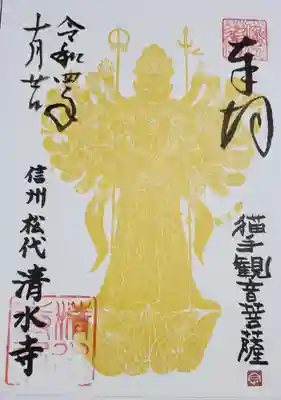 奉拝
猫手観音菩薩
令和四年
十月廿日
信州 松代 清水寺